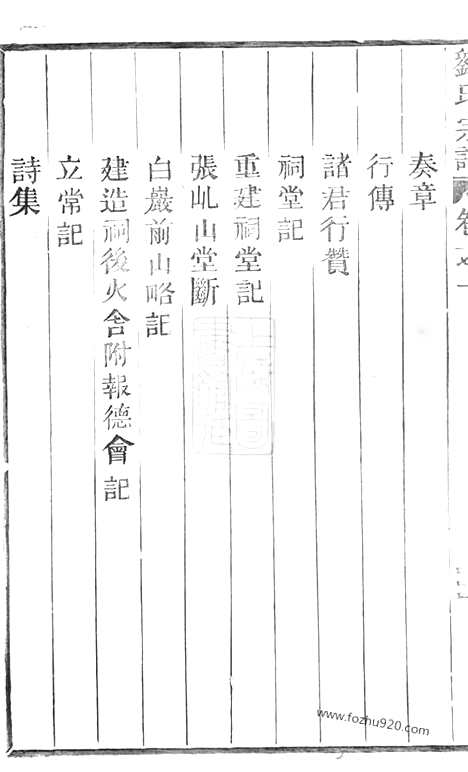 劉氏宗譜 卷之一
奏章
行傳
諸君行贊
祠堂記
重建祠堂記
張山山堂斷
白巖前山略記
建造祠後火舍附報德會記
立常記
詩集
www.fozhu920.com